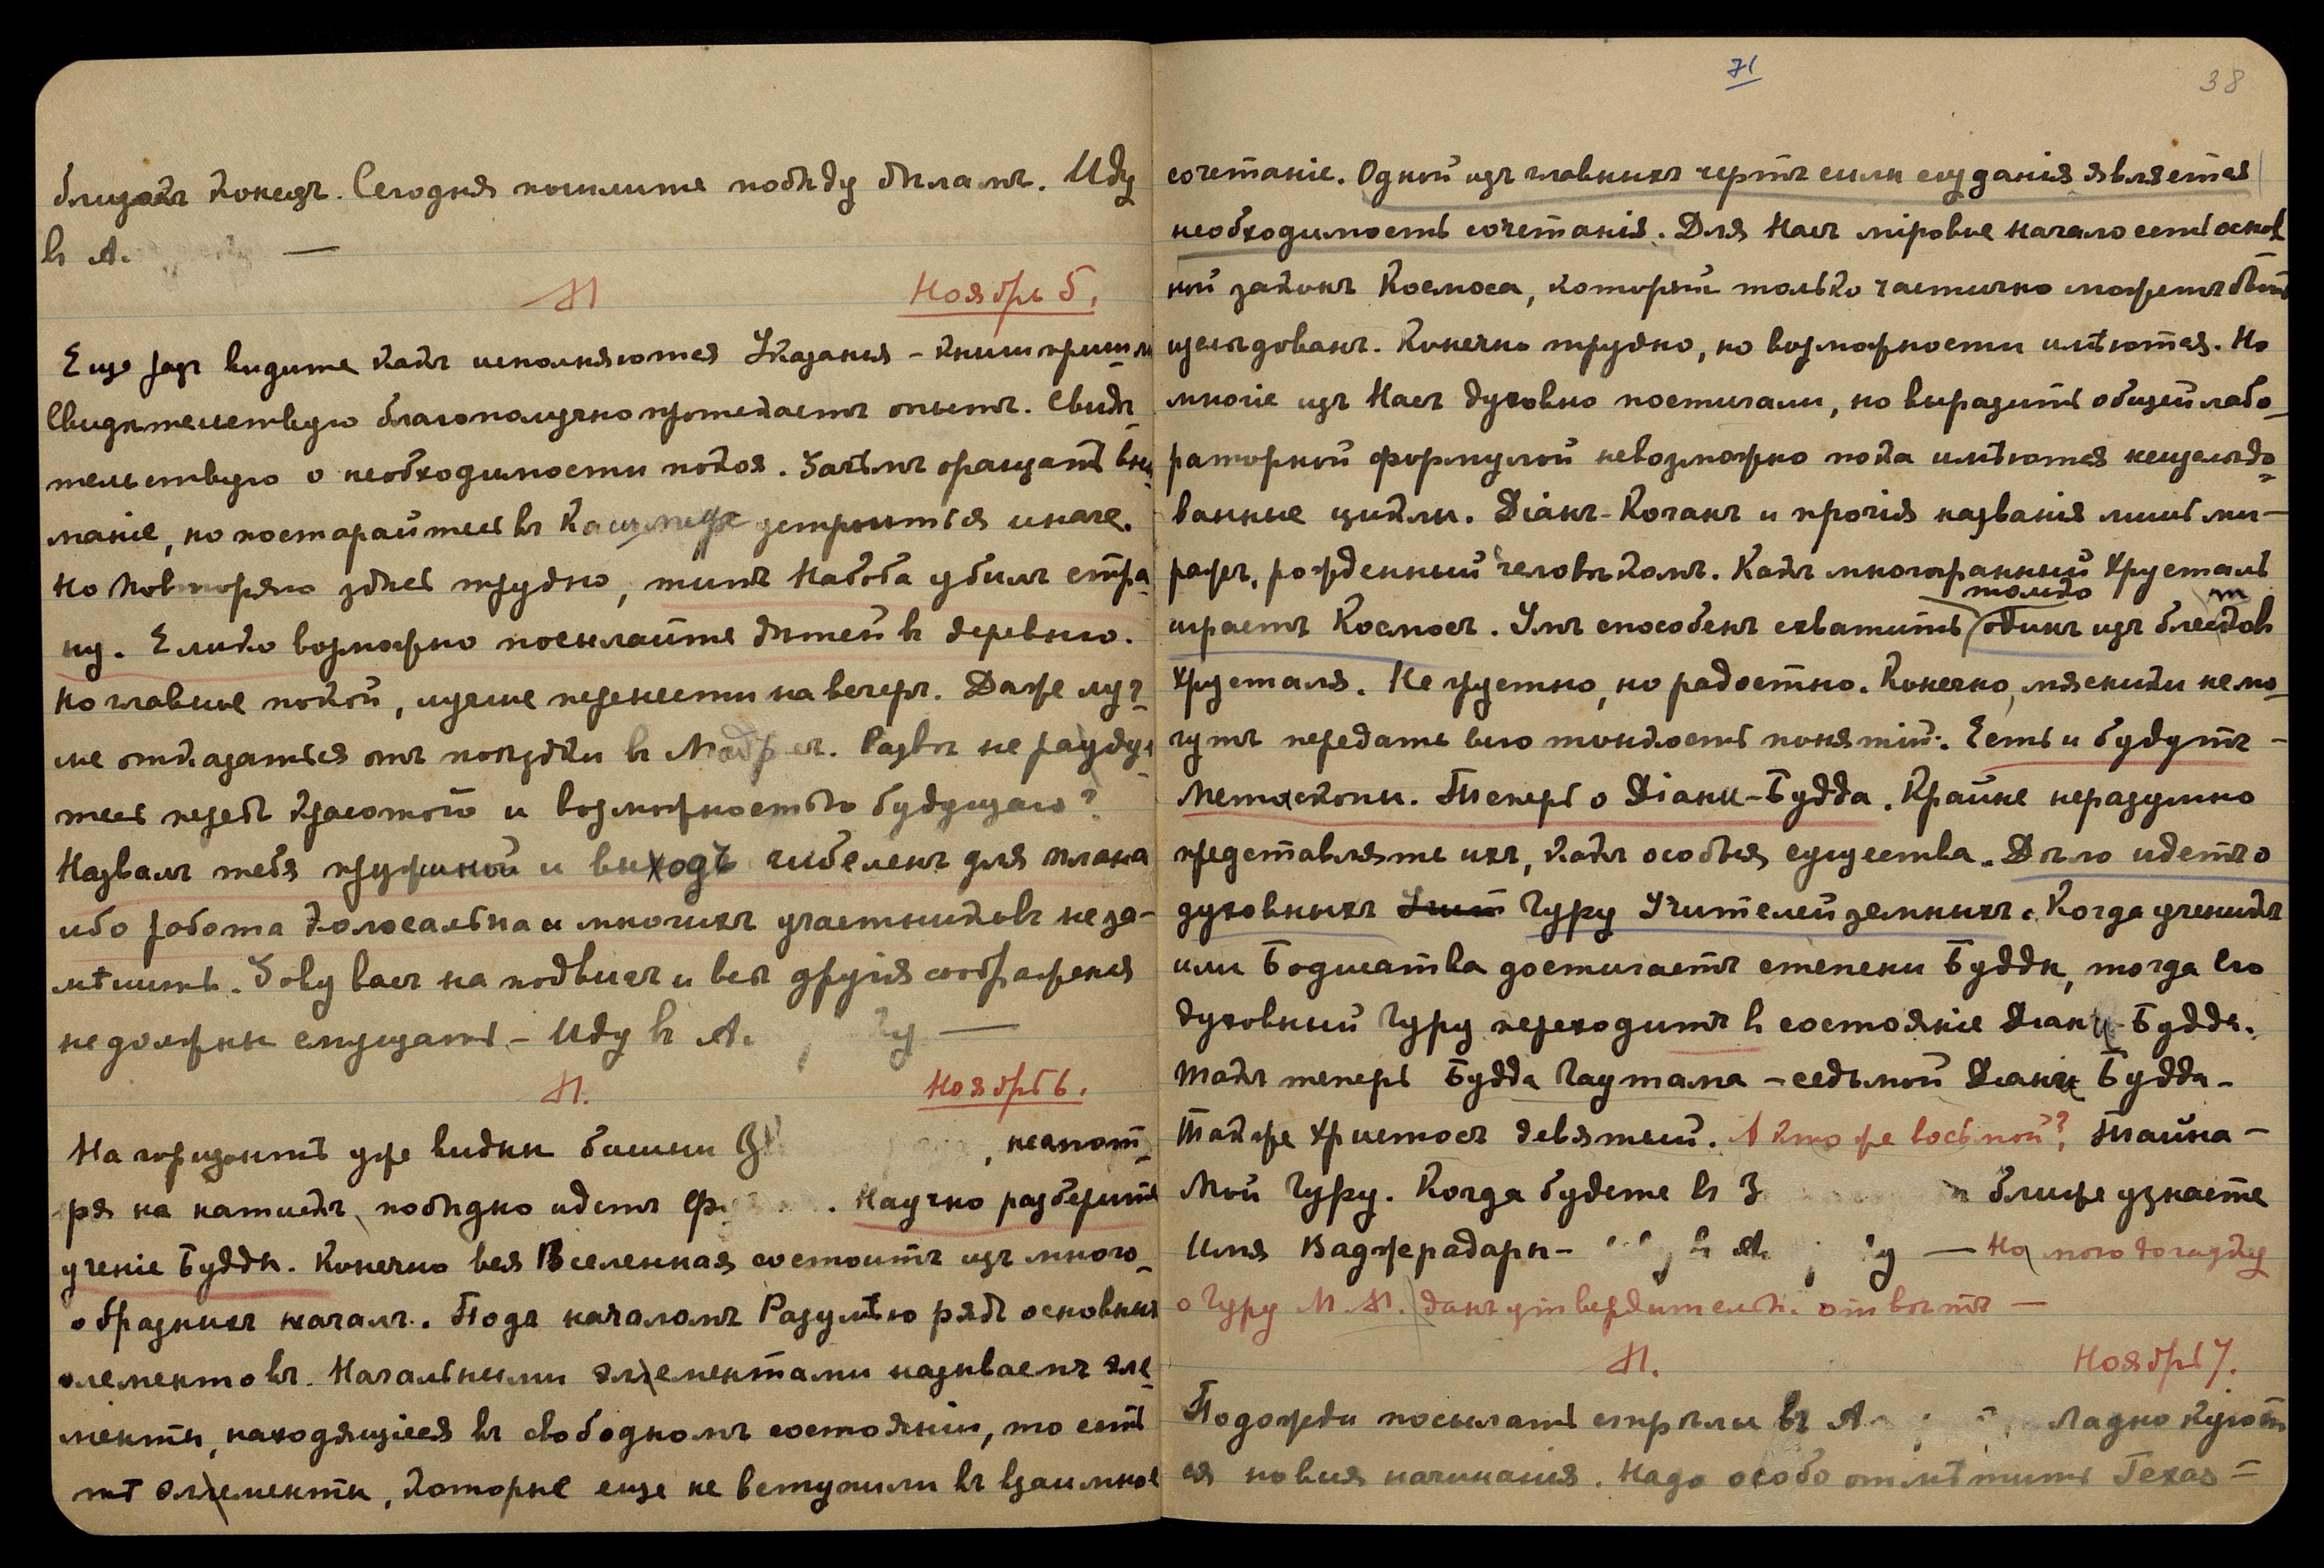 близокъ конецъ. Сегодня пошлите побѣду бѣламъ. Иду
въ А. —
Ноябрь 5.
Еще разъ видите какъ исполняются Указанья – книги пришли
Свидѣтельствую благополучно протекаетъ опытъ. Свидѣ-
тельствую о необходимости покоя. Зачѣмъ обращать вни-
маніе, но постарайтесь въ устроиться иначе.
Но повторяю здѣсь трудно, типъ Набоба убилъ стра-
ну. Елико возможно посылайте дѣтей въ деревню.
Но главное покой, лучше перенести на вечеръ. Даже луч-
ше отказаться отъ поѣздки въ Развѣ не
тесь передъ красотою и возможностью будущаго?
Назвалъ тебя пружиной и выходъ гибеленъ для плана
ибо работа колосальна и многихъ участниковъ не за-
мѣнить. Зову васъ на подвигъ и всѣ другія соображенія
не должны смущать – Иду въ А. —
Ноябрь 6.
На горизонтѣ уже видны башни , несмот-
ря на натискъ, побѣдно идетъ . Научно разберите
ученіе Будды. Конечно вся Вселенная состоитъ изъ много-
образныхъ началъ. Подъ началомъ Разумѣю рядъ основныхъ
элементовъ. Начальными элементами называемъ эле-
менты, находящіеся въ свободномъ состояніи, то есть
тѣ элементы, которые еще не вступили въ взаимное
71
38
сочетаніе. Одной изъ главныхъ чертъ силы созданія является
необходимость сочетанія. Для Насъ міровое начало есть основ
ной законъ Космоса, который только частично можетъ быть
изслѣдованъ. Конечно трудно, но возможности имѣются. Но
многіе изъ Насъ духовно постигали, но выразить общей лабо-
раторной формулой невозможно пока имѣются неизслѣдо-
ванные циклы. Діанъ-Коганъ и прочія названія лишь ми-
ражъ, рожденный человѣкомъ. Какъ многогранный Хрусталь
только
играетъ Космосъ. Умъ способенъ схватить одинъ изъ блестковъ
хрусталя. Не грустно, но радостно. Конечно, не мо-
гутъ передать всю тонкость понятій. Есть и будутъ –
Теперь о Діани-Будда. Крайне неразумно
представлять ихъ, какъ особыя существа. Дѣло идетъ о
духовныхъ Гуру Учителей земныхъ. Когда ученикъ
или Бодисатва достигаетъ степени Будды, тогда его
духовный Гуру переходитъ въ состояніе Діани-Будды.
Такъ теперь Будда Гаутама – седьмой Діани Будда –
Также Христосъ девятый. А кто же восьмой? Тайна –
Мой Гуру. Когда будете въ З ближе узнаете
Имя – въ А. — На мою догадку
о Гуру М. данъ утвердительн. отвѣтъ —
Ноябрь 7.
Подожди посылать стрѣлы въ А Ладно куютъ
ся новыя начинанія. Надо особо отмѣтить Техас=